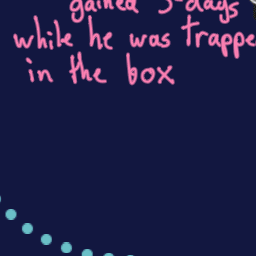 gained 3-days
while he was trappe
in the box